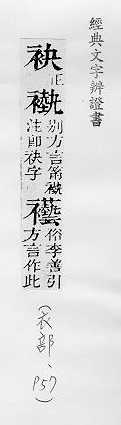 經典文字辨證書
袂正
襼別方言䘸襼
注即袂字
襼俗李善引
方言作此
(衣部、
P57)